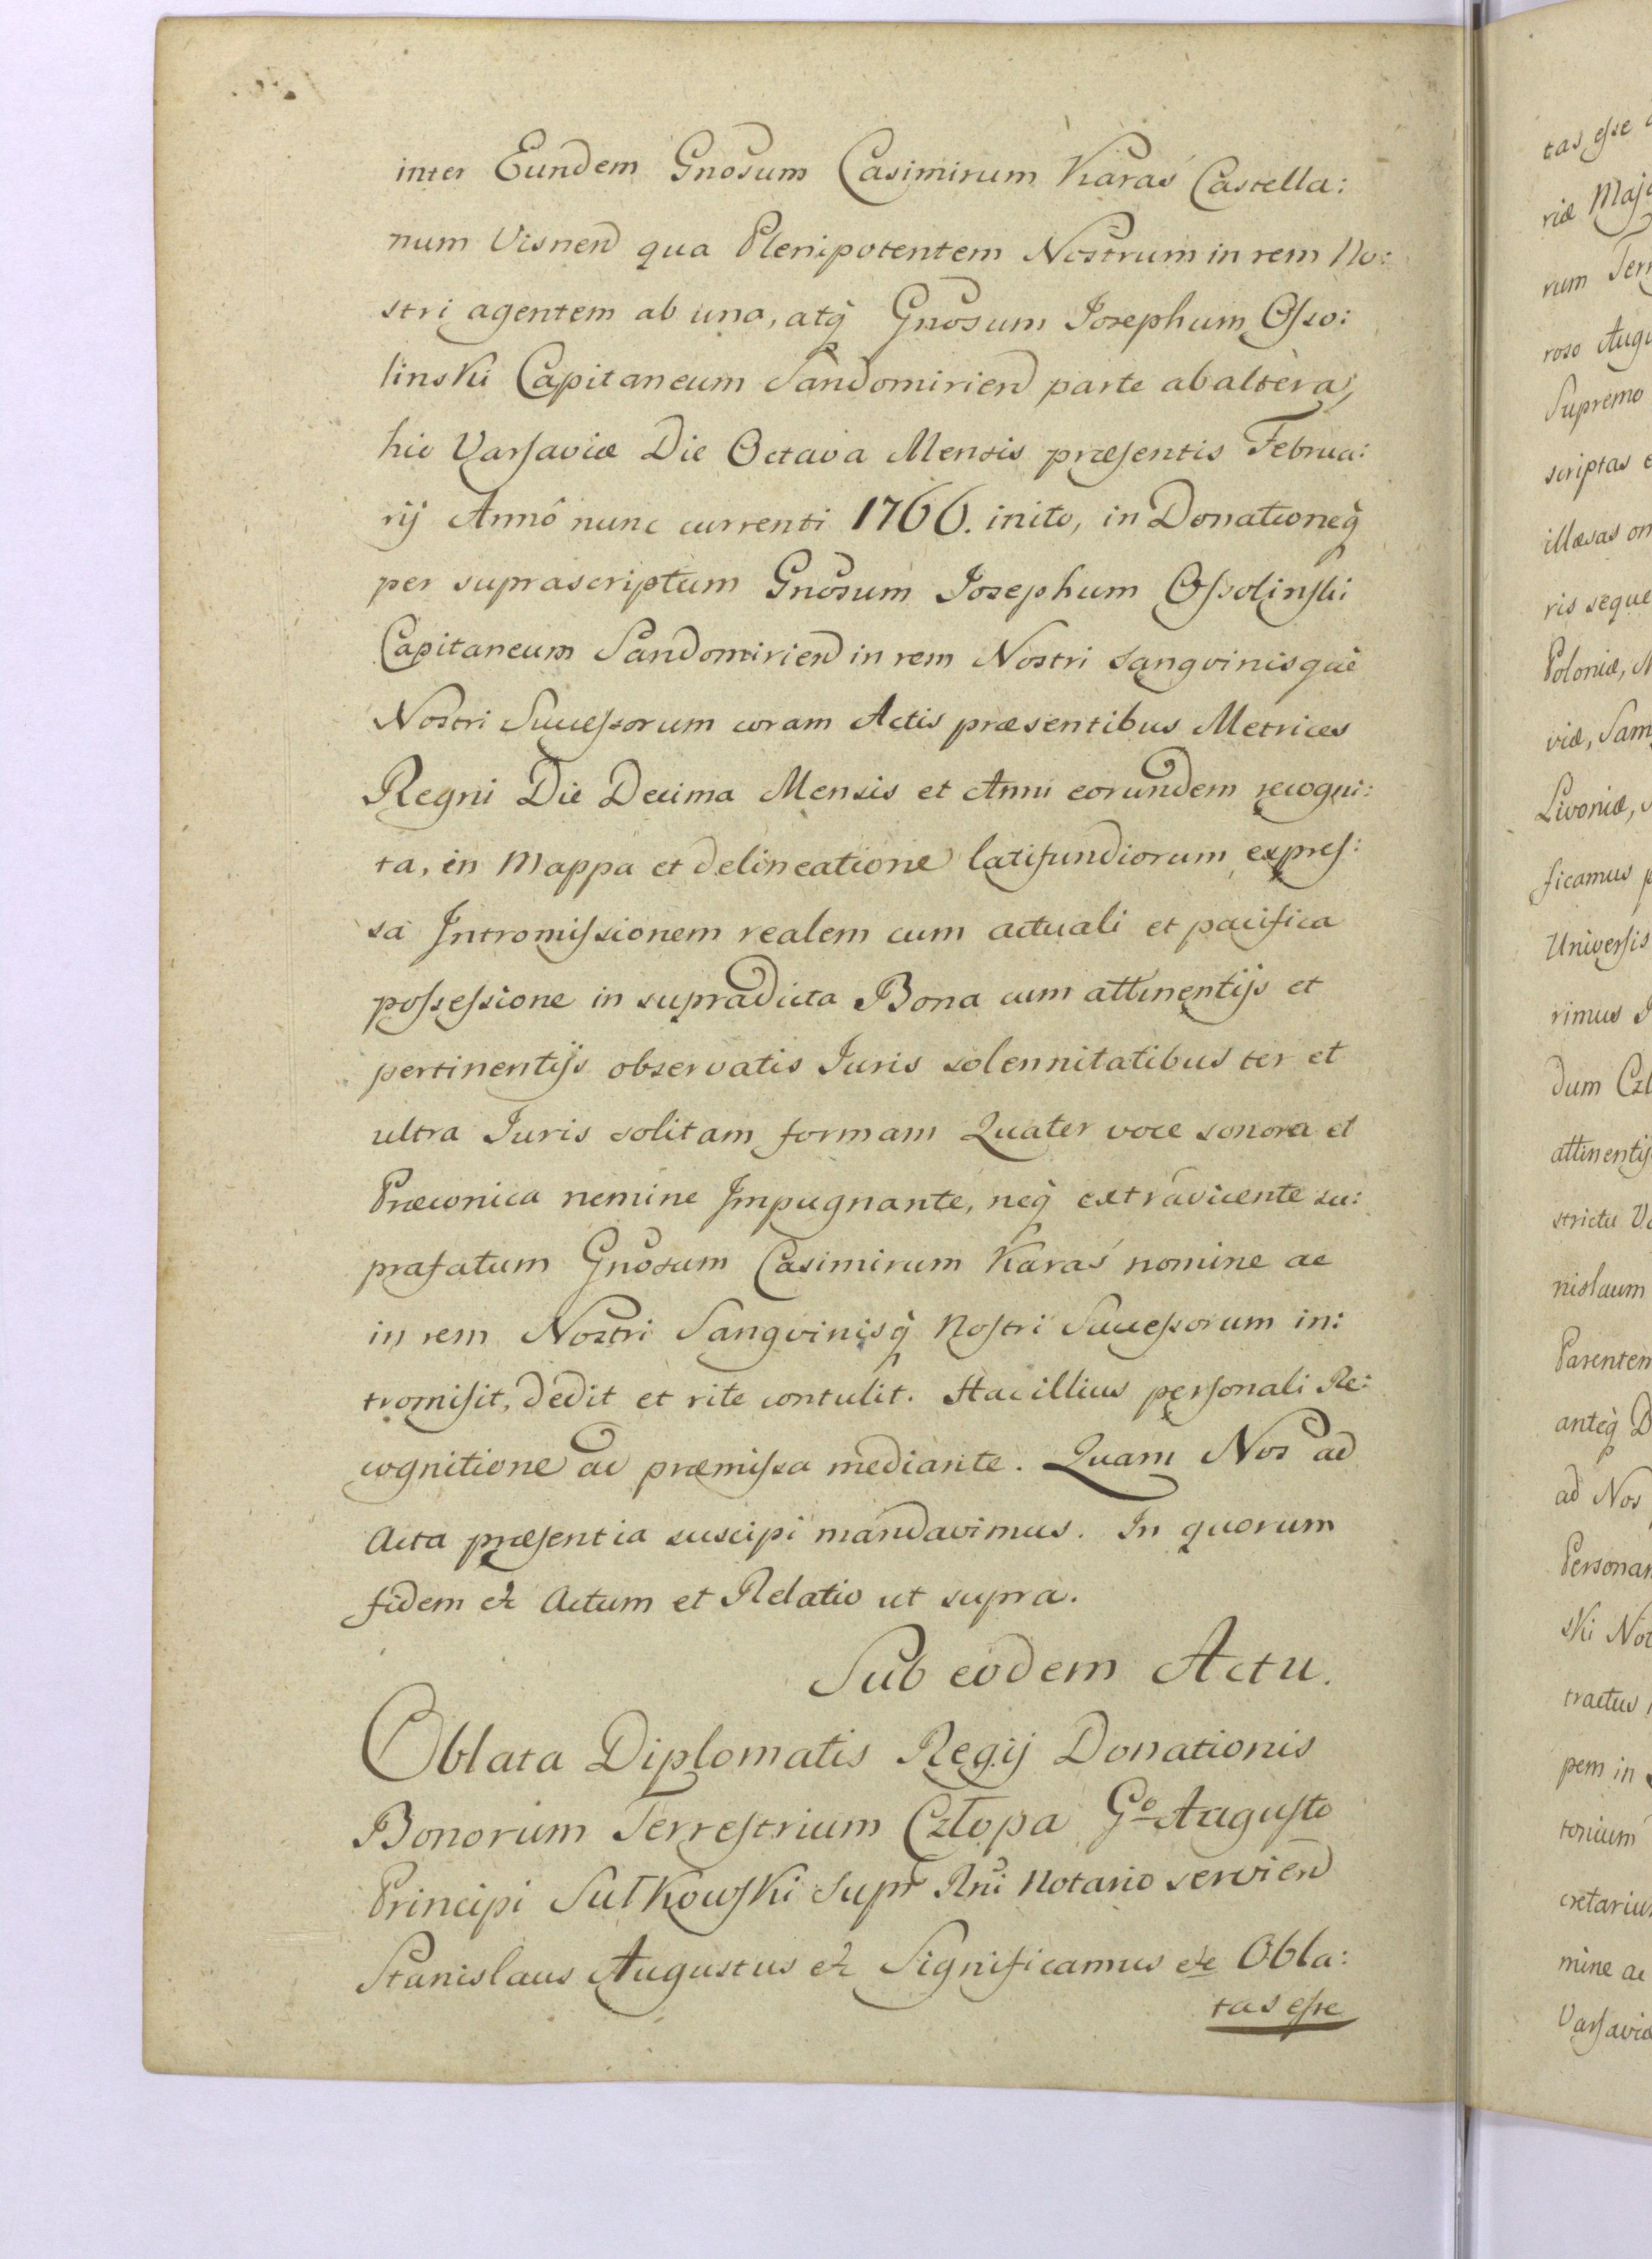 inter Eundem Gnosum Casimirum Karaś Castella:
num Visnen qua Plenipotentem Nostrum in rem No:
stri agentem ab una, atq̀ Gnosum Josephum Osso:
linski Capitaneum Sandomirien parte ab altera,
hic Varsaviæ Die Octava Mensis præsentis Februa:
rij Annô nunc currenti 1766. inito, in Donationeq̀
per suprascriptum Gnosum Josephum Ossolinski
Capitaneum Sandomirien in rem Nostri Sangvinisque
Nostri Successorum coram Actis præsentibus Metrices
Regni Die Decima Mensis et Anni eorundem recogni:
ta, in Mappa et delineatione latifundiorum expres:
sa Intromissionem realem cum actuali et pacifica
possessione in supradicta Bona cum attinentijs et
pertinentijs observatis Juris solennitatibus ter et
ultra Juris solitam formam Quater voce sonora et
Præconica nemine Impugnante, neq̀ extravicente su:
prafatum Gnosum Casimirum Karaś nomine ac
in rem Nostri Sangvinisq̀ Nostri Successorum in:
tromisit, dedit et rite contulit. Hac illius personali Re:
cognitione ac præmissa mediante. Quam Nos ad
Acta præsentia suscipi mandavimus. In quorum
fidem et Actum et Relatio ut supra.
Sub eodem Actu.
Oblata Diplomatis Regij Donationis
Bonorum Terrestrium Człopa Go Augusto
Principi Sułkowski Supr Rni Notario servien
Stanislaus Augustus et Significamus etc Obla:
tas esse
tas esse
riæ Maj
rum Terr
roso Augu
Supremo
scriptas
illæsas om
ris seque
Poloniæ, M
viæ, Sam
Livoniæ,
ficamus p
Universis
rimus J
dum Czł
attinentij
strictu V
nislaum
Parentem
anteq̀ D
ad Nos
Personam
ski Not
tractus
pem in
torium
cretarium
mine ac
Varsaviæ